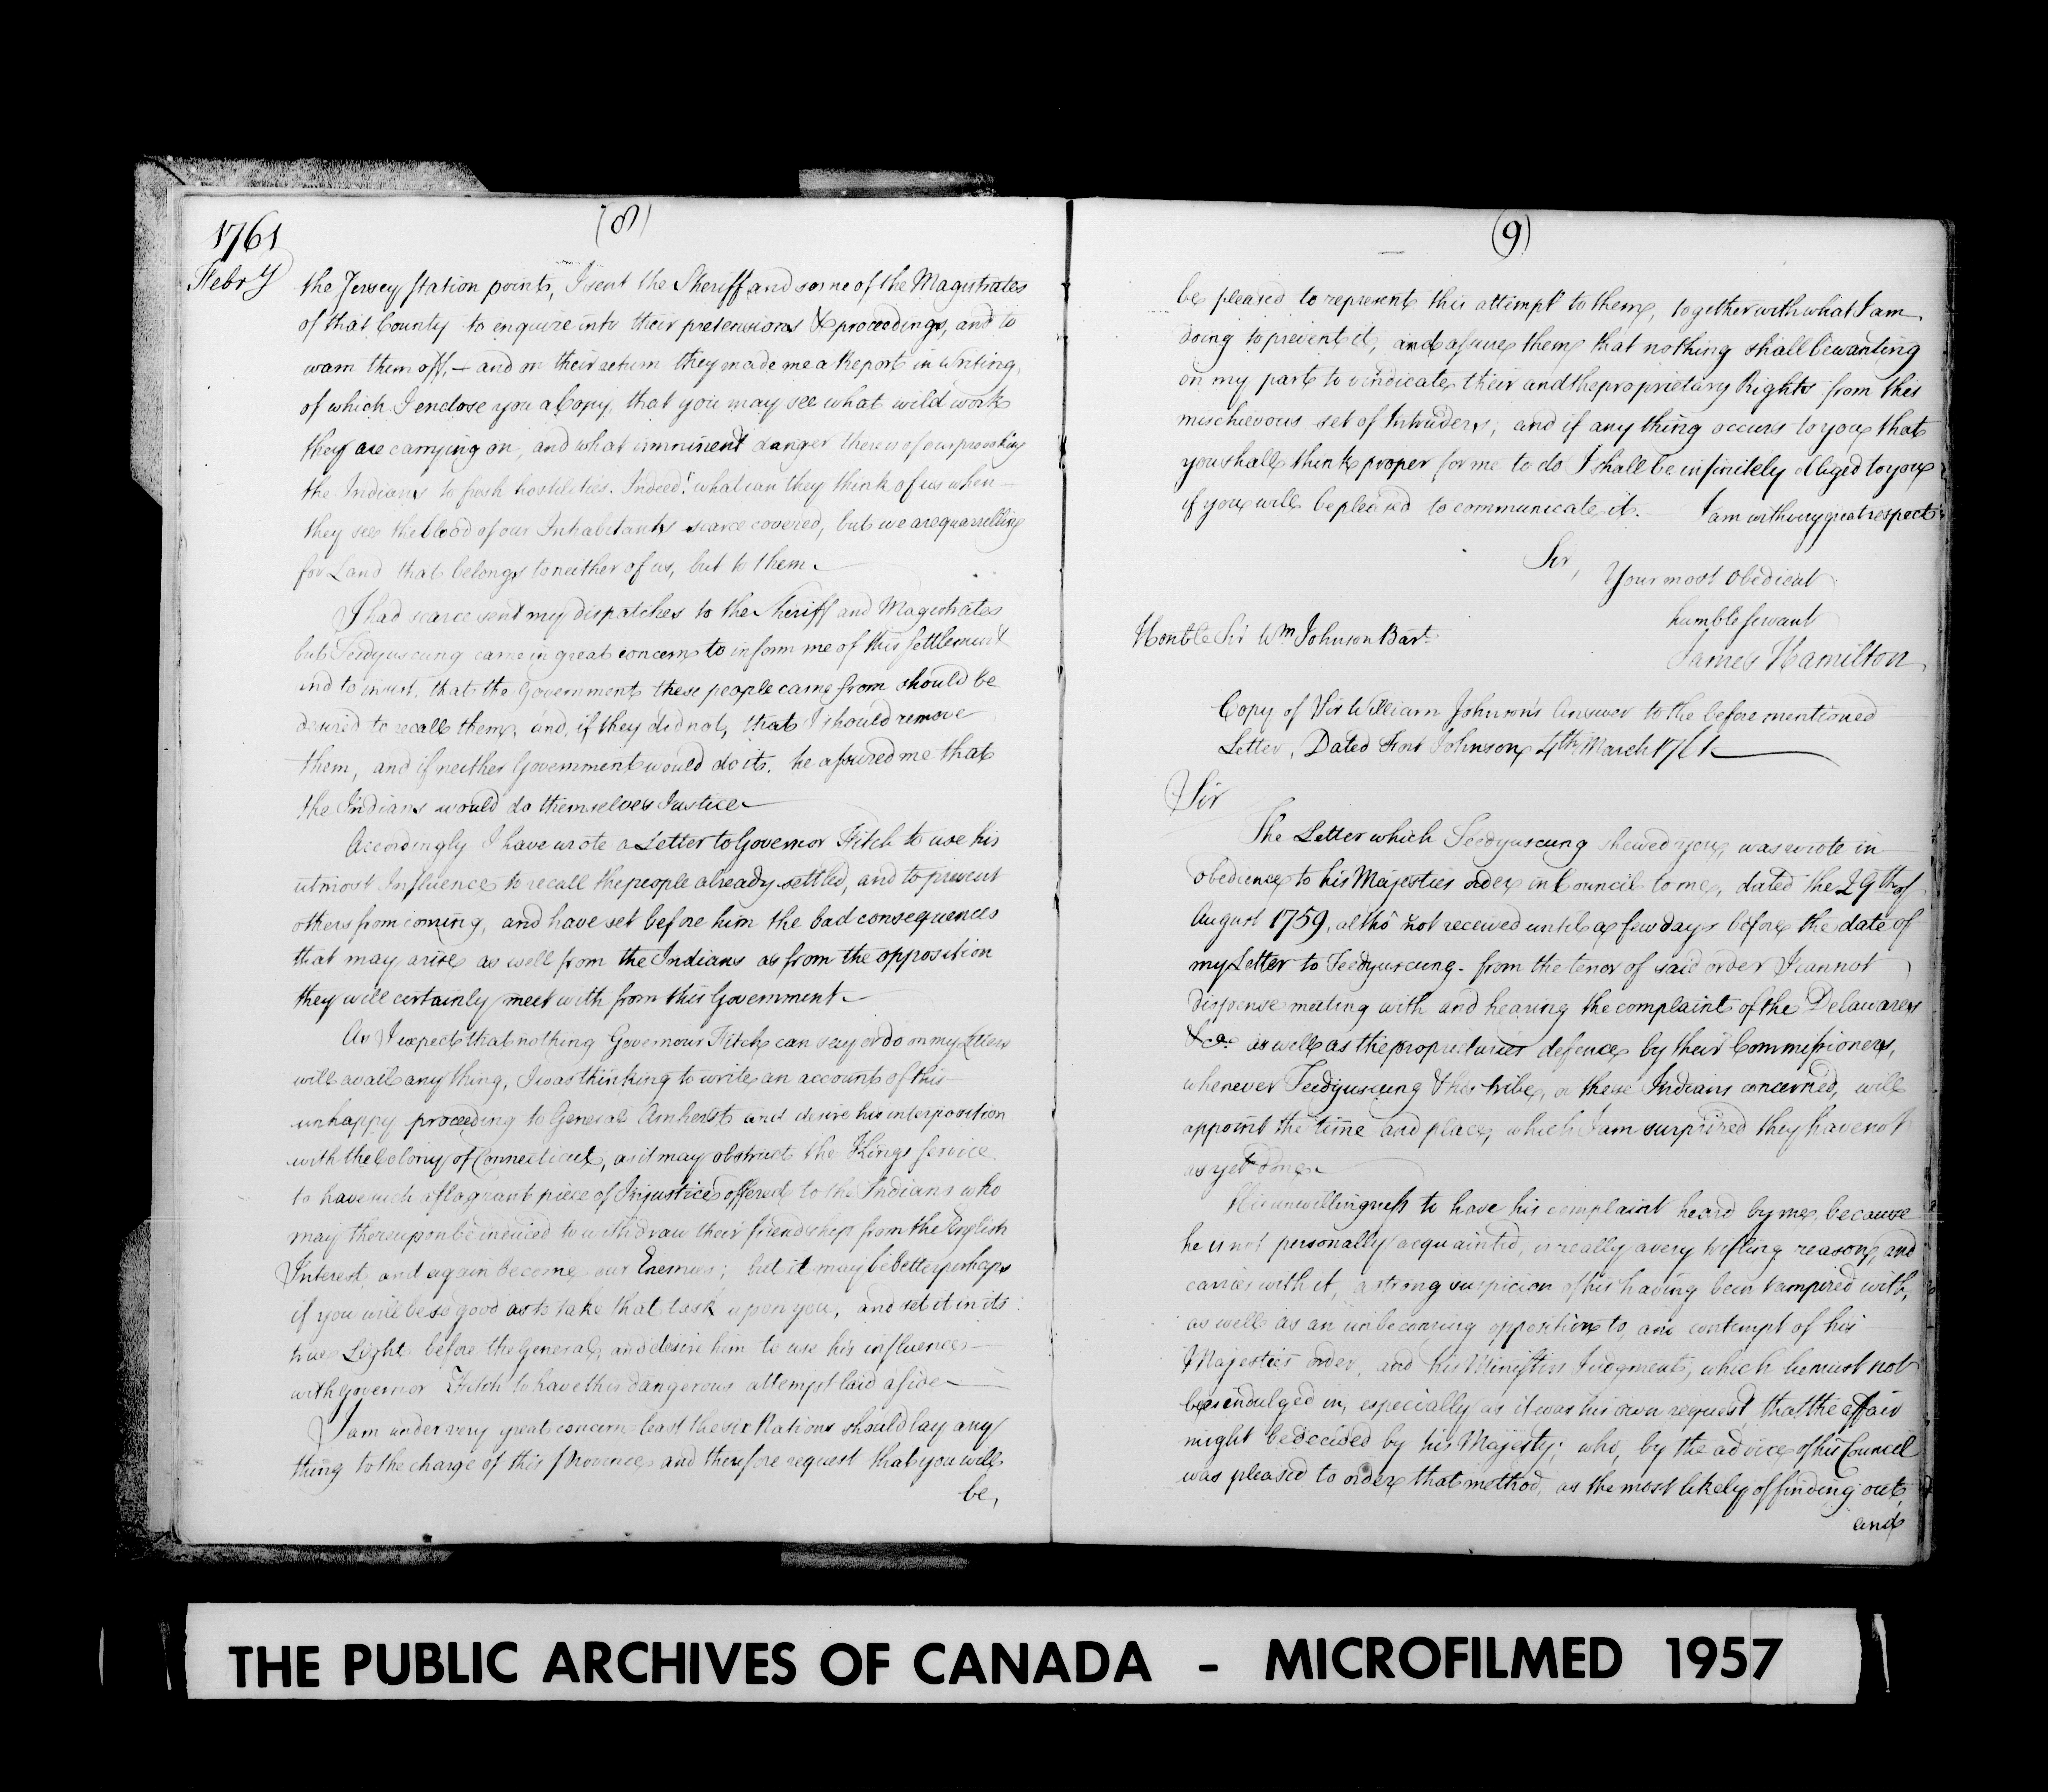 1761
Febry
(8)
the Jersey Station points, I sent the Sheriff and some of the Magistrates
of that County to enquire into their pretensions & proceedings, and to
warn them off, — and on their return they made me a Report in Writing,
of which I enclose you a Copy, that you may see what wild work
they are carrying on, and what imminent danger there is of our provoking
the Indians to fresh hostilities. Indeed! what can they think of us when —
they see the blood of our Inhabitants scarce covered, but we are quarrelling
for Land that belongs to neither of us, but to them. —
I had scarce sent my dispatches to the Sheriff and Magistrates
but Teedyuscung came in great concern to inform me of this Settlement
and to insist, that the Government these people came from should be
desired to recall them, and, if they did not, that I should remove
them, and if neither Government would do it, he assured me that
the Indians would do themselves Justice —
Accordingly I have wrote a Letter to Governor Fitch to use his
utmost Influence to recall the people already settled, and to prevent
others from coming, and have set before him the bad consequences
that may arise as well from the Indians as from the opposition
they will certainly meet with from this Government —
As I expect that nothing Governour Fitch can say or do on my Letters
will avail any thing, I was thinking to write an account of this —
unhappy proceeding to General Amherst and desire his interposition
with the Colony of Connecticut, as it may obstruct the Kings Service
to have such a flagrant piece of Injustice offered to the Indians who
may thereupon be induced to withdraw their friendship from the English
Interest, and again become our Enemies; but it may be better perhaps
if you will be so good as to take that task upon you, and set it in its
true Light before the General, and desire him to use his influence —
with Governor Fitch to have this dangerous attempt laid aside —
I am under very great concern least the six Nations should lay any
thing to the charge of this Province, and therefore request that you will
be,
(9)
be pleased to represent this attempt to them, together with what I am
doing to prevent it, and assure them that nothing shall be wanting
on my part to vindicate their and the proprietary Rights from this
mischievous set of Intruders; and if any thing occurs to you that
you shall think proper for me to do I shall be infinitely obliged to you
if you will be pleased to communicate it. I am with very great respect
Sir,
Your most Obedient
humble Servant
James Hamilton
Honble Sir Wm Johnson Bart.
Copy of Sir William Johnson's Answer to the before mentioned
Letter, Dated Fort Johnson 4th March 1761 —
Sir
The Letter which Teedyuscung shewed you, was wrote in —
obedience to his Majesties order in Council to me, dated the 29th of
August 1759, altho' not received until a few days before the date of
my Letter to Teedyuscung. from the tenor of said order I cannot
dispense meeting with and hearing the complaint of the Delawares
&ca. as well as the proprietaries defence by their Commissioners,
whenever Teedyuscung & his tribe, or these Indians concerned, will
appoint the time and place, which I am surprized they have not
as yet done —
His unwillingness to have his complaint heard by me, because
he is not personally acquainted, is really a very trifling reason, and
carries with it, a strong suspicion of his having been tampered with,
as well as an unbecoming opposition to, and contempt of his
Majesties order, and his Ministers Judgment, which he must not
be indulged in, especially as it was his own request that the affair
might be decided by his Majesty; who, by the advice of his Council
was pleased to order that method, as the most likely of finding out,
and
THE PUBLIC ARCHIVES OF CANADA - MICROFILMED 1957